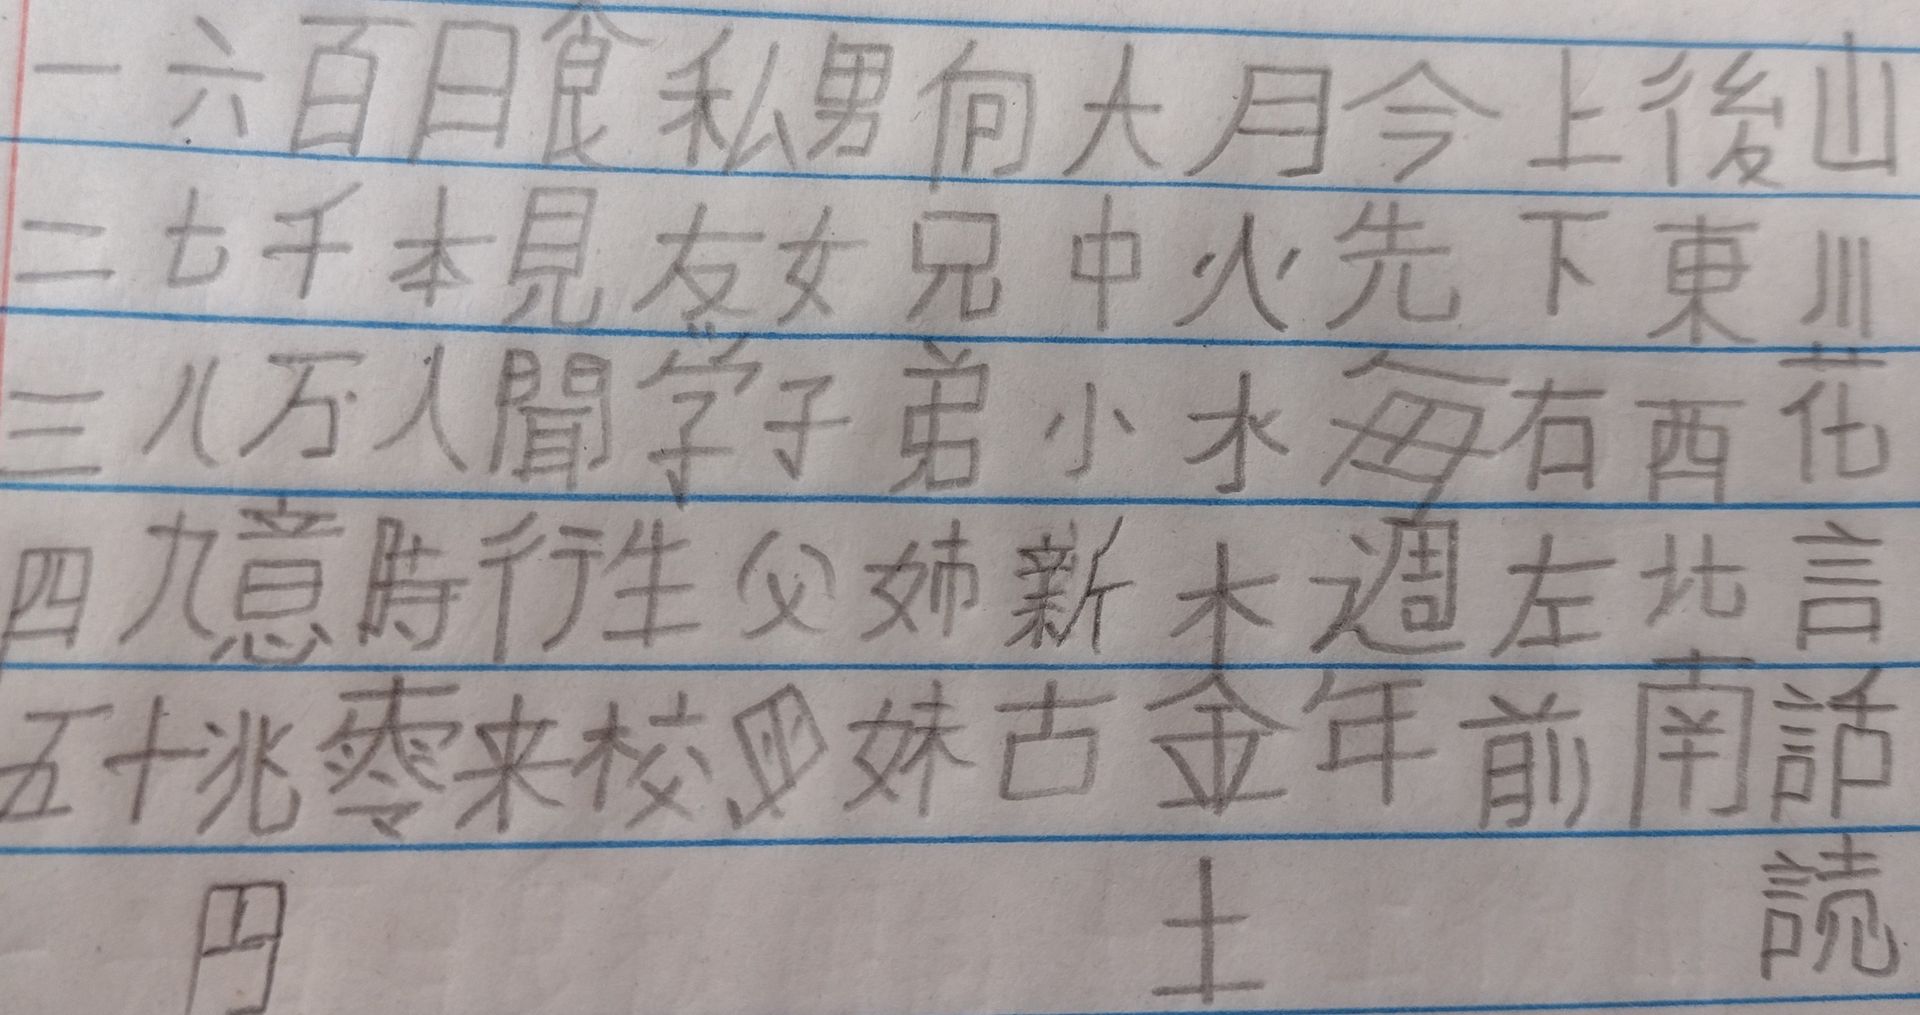 一六百日食私男何大月今上後山
二七千本見友女兄中火先下東川
三八万人聞学子弟小水毎右西花
四九意時行生父姉新木週左北言
五十兆零来校母妹古金年前南話
円土読